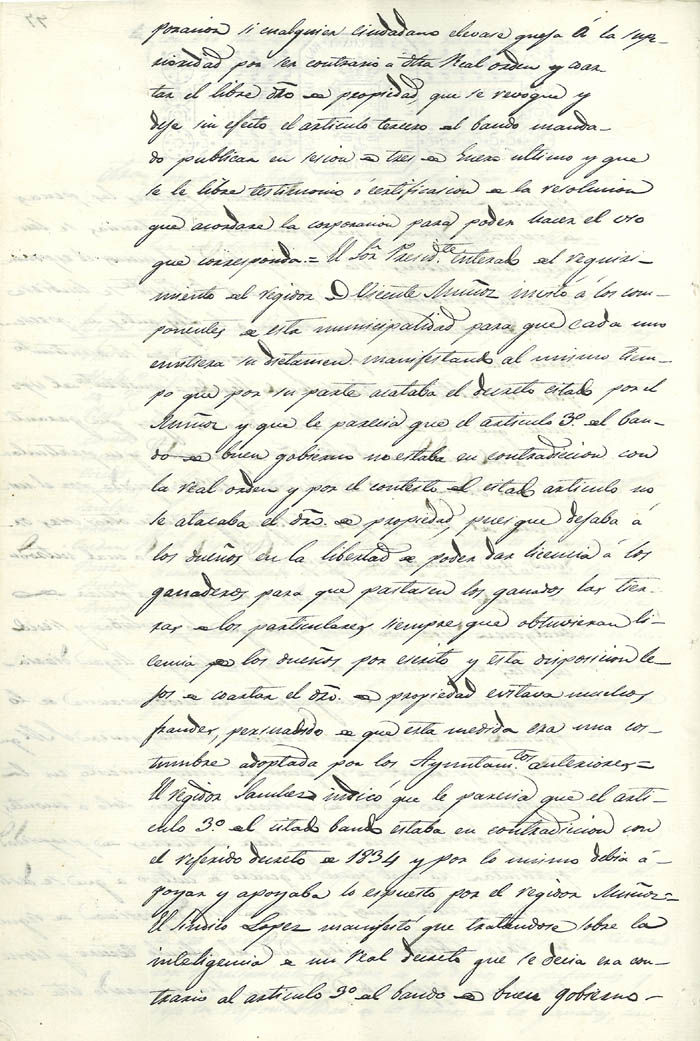 poracion si cualquier ciudadano elevase queja á la supe-
rioridad por ser contrario a dha Real orden y coar-
tar el libre dro de propiedad, que se revoque y
deje sin efecto el articulo tercero del bando manda-
do publicar en sesion de tres de Enero ultimo y que
se le libre testimonio ó certificacion de la resolucion
que acordare la corporacion para poder hacer el uso
que corresponda.= El Sor Presid.te enterado del requiri-
miento del regidor D Vicente Muñoz invitó á los com-
ponentes de esta municipalidad para que cada uno
emitiera su dictamen manifestando al mismo tiem-
po que por su parte acataba el decreto citado por el
Muñoz y que le parecia que el articulo 3.o del ban-
do de buen gobierno no estaba en contradicion con
la real orden y por el contesto del citado articulo no
se atacaba el dro. de propiedad, pues que dejaba á
los dueños en la libertad de poder dar licencia á los
ganaderos para que pastasen los ganados las tier-
ras de los particulares siempre que obtuvieran li-
cencia de los dueños por escrito y esta disposicion le-
jos de coartar el dro. de propiedad evitava muchos
fraudes, persuadido de que esta medida era una cos-
tumbre adoptada por los Ayuntam.tos anteriores=
El regidor indicó que le parecia que el arti-
culo 3.o del citado bando estaba en contradicion con
el referido decreto de 1834 y por lo mismo debia a-
poyar y apoyaba lo espuesto por el regidor Muñoz=
El Sindico Lopez manifestó que tratandose sobre la
inteligencia de un Real decreto que se decia era con-
trario al articulo 3.o del bando de buen gobierno-